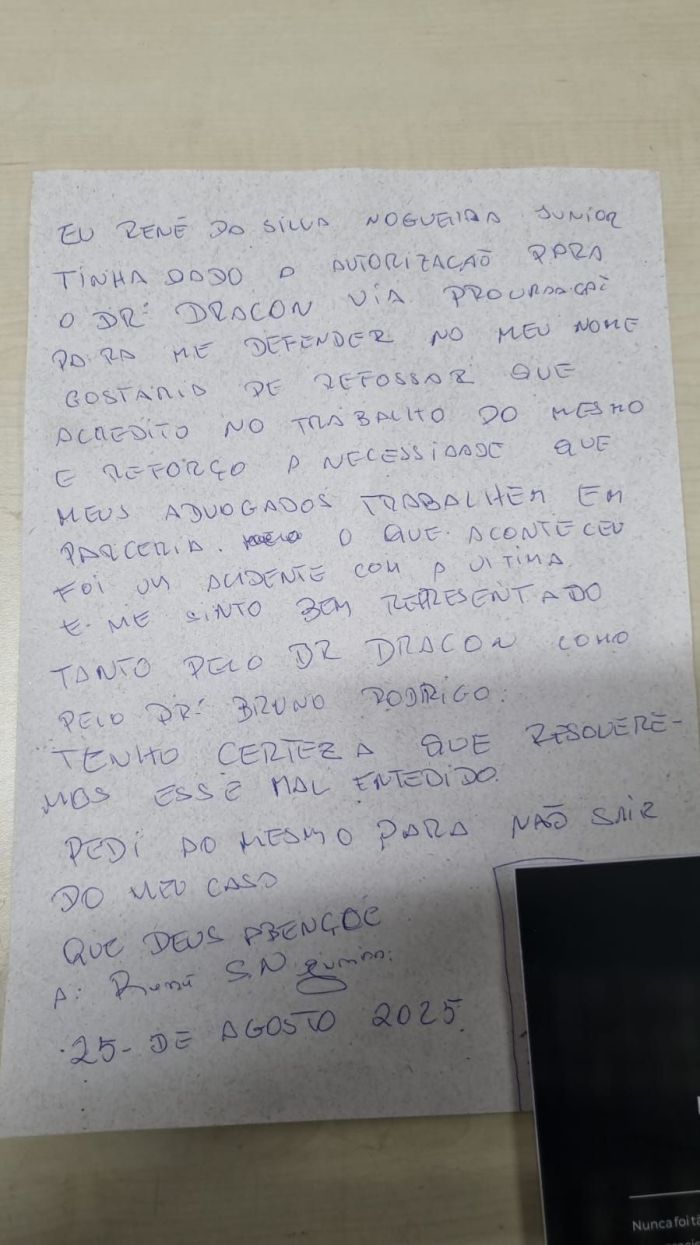 EU RENÉ DA SILVA NOGUEIRA JUNIOR
TINHA DADO A AUTORIZAÇÃO PARA
O DR: DRACON VIA
PARA ME DEFENDER NO MEU NOME
GOSTARIA DE REFOSSAR QUE
ACREDITO NO TRABALHO DO MESMO
E REFORÇO A NECESSIDADE QUE
MEUS ADVOGADOS TRABALHEM EM
PARCERIA. O QUE ACONTECEU
FOI UM ACIDENTE COM A VITIMA.
E ME SINTO BEM REPRESENTADO
TANTO PELO DR DRACON COMO
PELO DR: BRUNO RODRIGO.
TENHO CERTEZA QUE RESOLVERE-
MOS ESSE MAL ENTEDIDO.
PEDI AO MESMO PARA NÃO SAIR
DO MEU CASO
QUE DEUS ABENÇOE
A: Renê S N Junior.
25- DE AGOSTO 2025.
Nunca foi